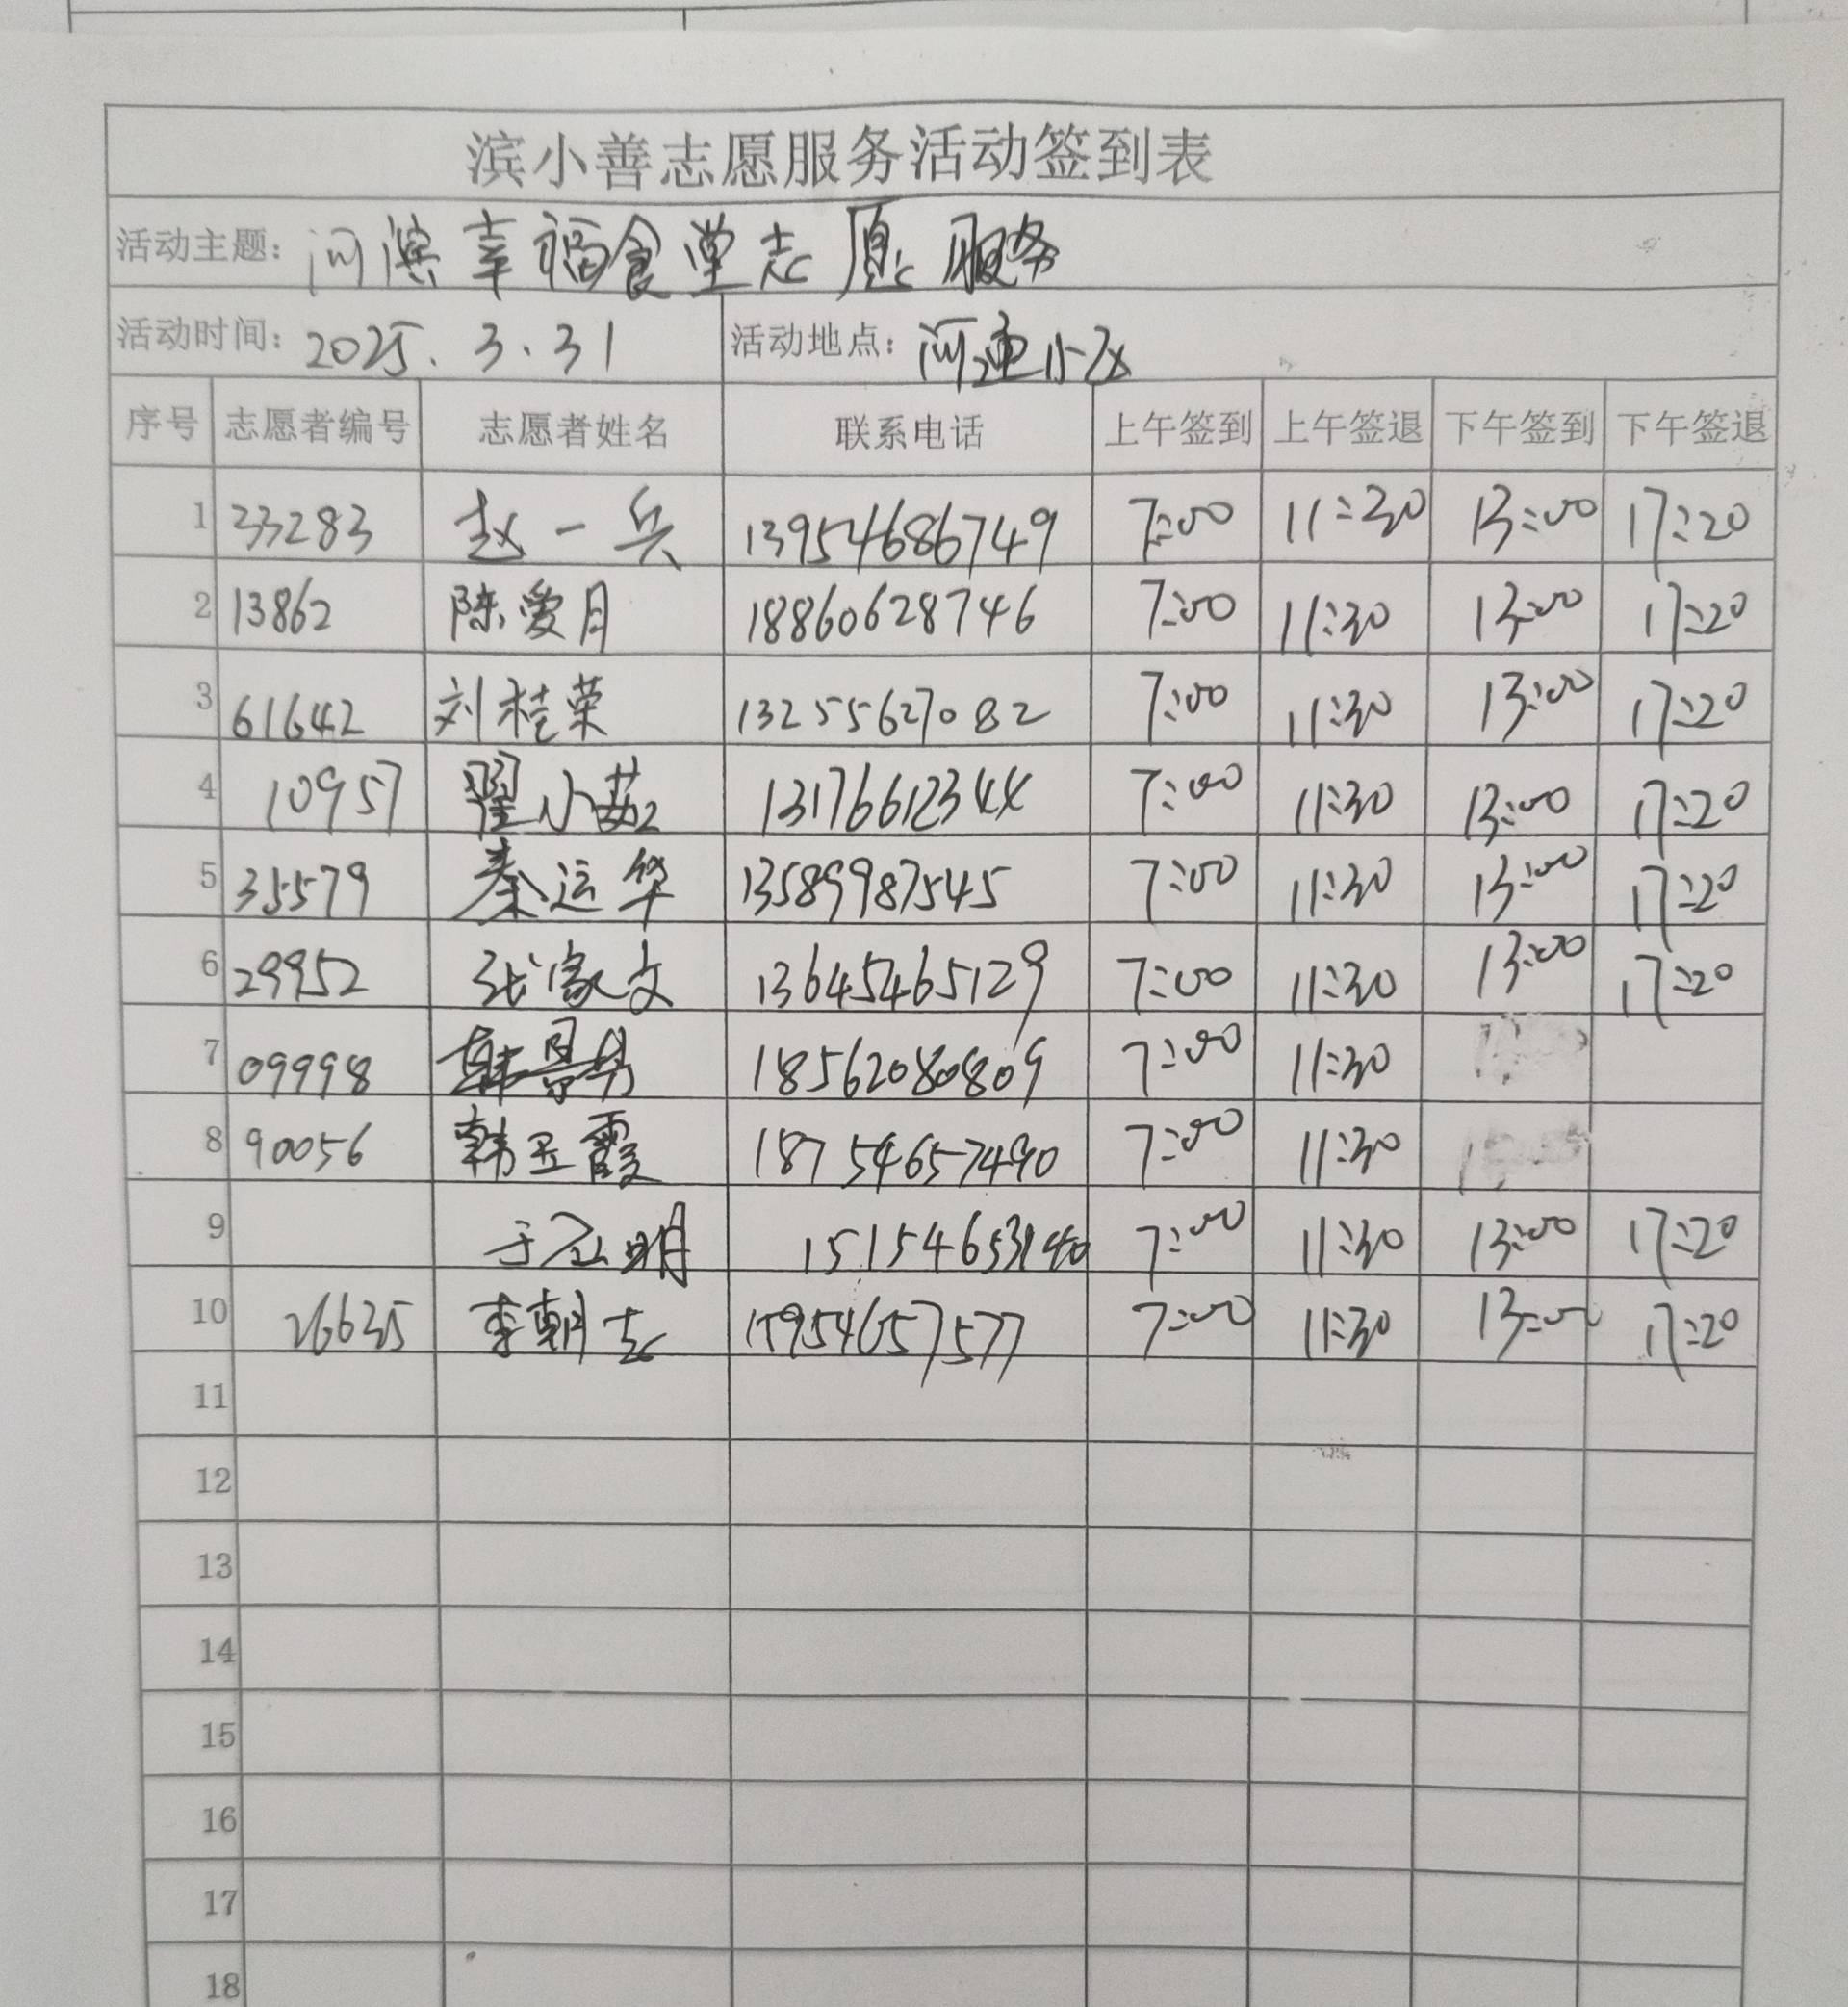 滨小善志愿服务活动签到表
活动主题: 河滨幸福食堂志愿服务
活动时间: 2025.3.31 活动地点: 河滨小区
序号 志愿者编号 志愿者姓名 联系电话 上午签到 上午签退 下午签到 下午签退
1 33283 赵一兵 13954686749 7:00 11:30 13:00 17:20
2 13862 陈爱月 18860628746 7:00 11:30 13:00 17:20
3 61642 刘桂荣 13255627082 7:00 11:30 13:00 17:20
4 10957 翟小茹 13176612344 7:00 11:30 13:00 17:20
5 35579 秦运华 13589987545 7:00 11:30 13:00 17:20
6 29952 张家文 13645465129 7:00 11:30 13:00 17:20
7 09998 18562080809 7:00 11:30
8 90056 韩玉霞 18754657490 7:00 11:30
9 7:00 11:30 13:00 17:20
10 26635 李朝志 15954657577 7:00 11:30 13:00 17:20
11
12
13
14
15
16
17
18